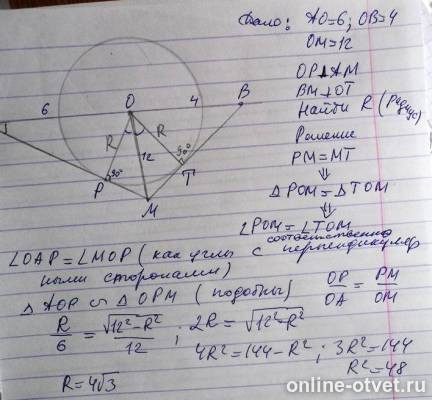 Дано: AO=6; OB=4
OM=12
OP⊥AM
BM⊥OT
Найти R (радиус)
Решение
PM=MT
⇓
△POM=△TOM
⇓
∠POM=∠TOM
6
O
4
B
R
R
12
90°
90°
P
T
M
∠OAP=∠MOP (как углы с соответственно перпендикуляр
ными сторонами)
△AOP ∽ △OPM (подобны) OP/OA = PM/OM
R/6 = √(12²-R²)/12 ; 2R = √(12²-R²)
4R²=144-R² ; 3R²=144
R²=48
R=4√3
online-otvet.ru